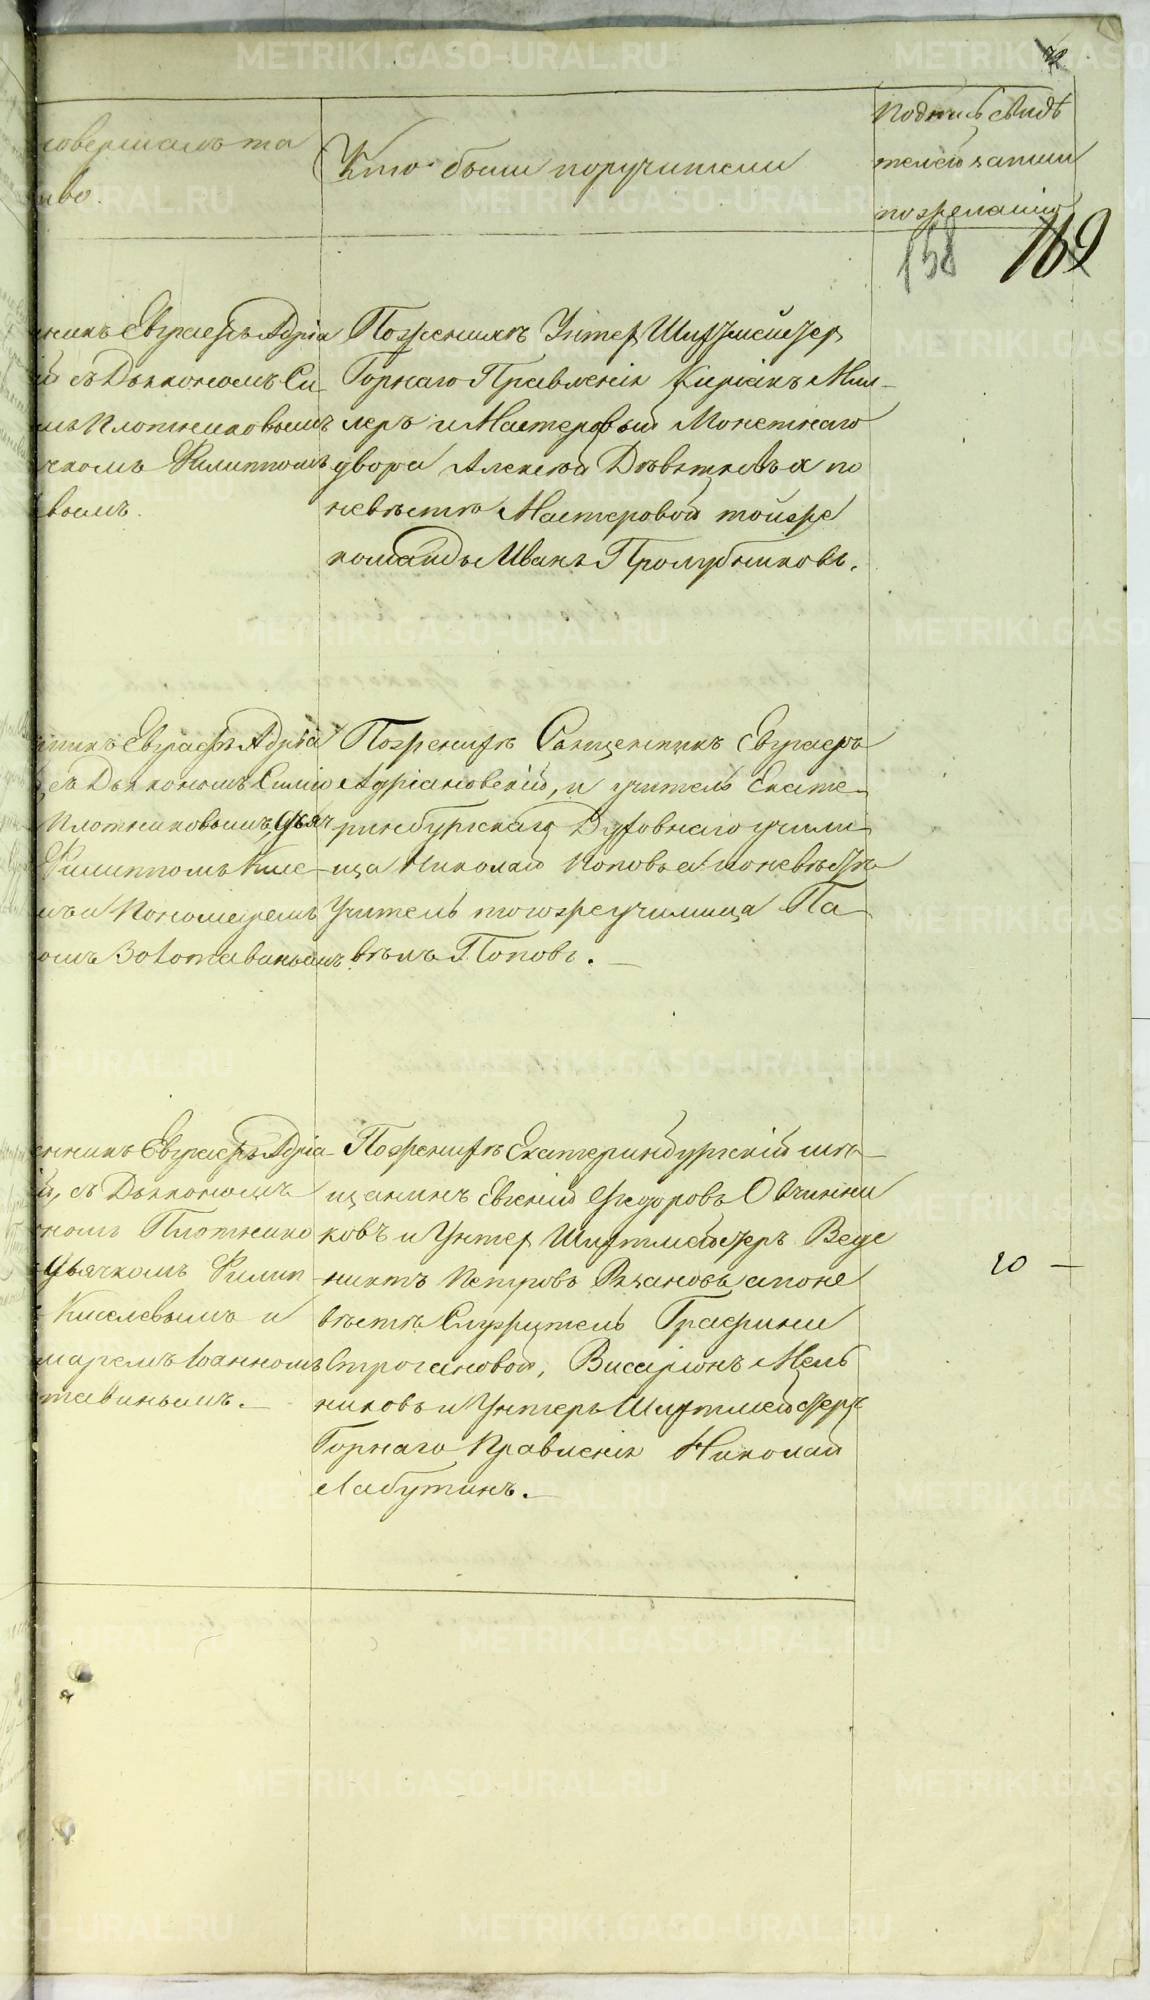 совершалъ та
иво.
Кто были поручители
Подпись свидѣ
телей записи
по желанію
158 169
нникъ Евграфъ Адріа
й съ Діакономъ Си
мъ Плотниковымъ
чкомъ Филиппомъ
вымъ.
По женихѣ Унтер Шихтмейстер
Горнаго Правленія Киріакъ Мил-
леръ и Мастеровый Монетнаго
двора Алексей Девятковъ а по
невѣстѣ Мастеровой тойже
команды Иванъ Пролубщиковъ.
нникъ Евграфъ Адріа
съ Діакономъ Симео
Плотниковымъ, Дьяч
Филиппомъ Кисе
мъ и Пономаремъ
омъ Золотавинымъ
По женихѣ Священникъ Евграфъ
Адріановскій, и учитель Екате-
ринбургскаго Духовнаго учили
ща Николай Поповъ а по невѣстѣ
Учитель тогоже училища Па
велъ Поповъ.
енникъ Евграфъ Адріа-
й, съ Діакономъ
номъ Плотнико
Дьячкомъ Филип
Киселевымъ и
маремъ Іоанномъ
тавинымъ.
По женихѣ Екатеринбургскій мѣ-
щанинъ Евгеній Ѳедоровъ Овчинни
ковъ и Унтер Шихтмейстеръ Вене
диктъ Петровъ Рязановъ а по не
вѣстѣ Служитель Графини
Строгановой, Висаріонъ Мель
никовъ и Унтеръ Шихтмейстеръ
Горнаго Правленія Николай
Лабутинъ.
20 —
METRIKI.GASO-URAL.RU